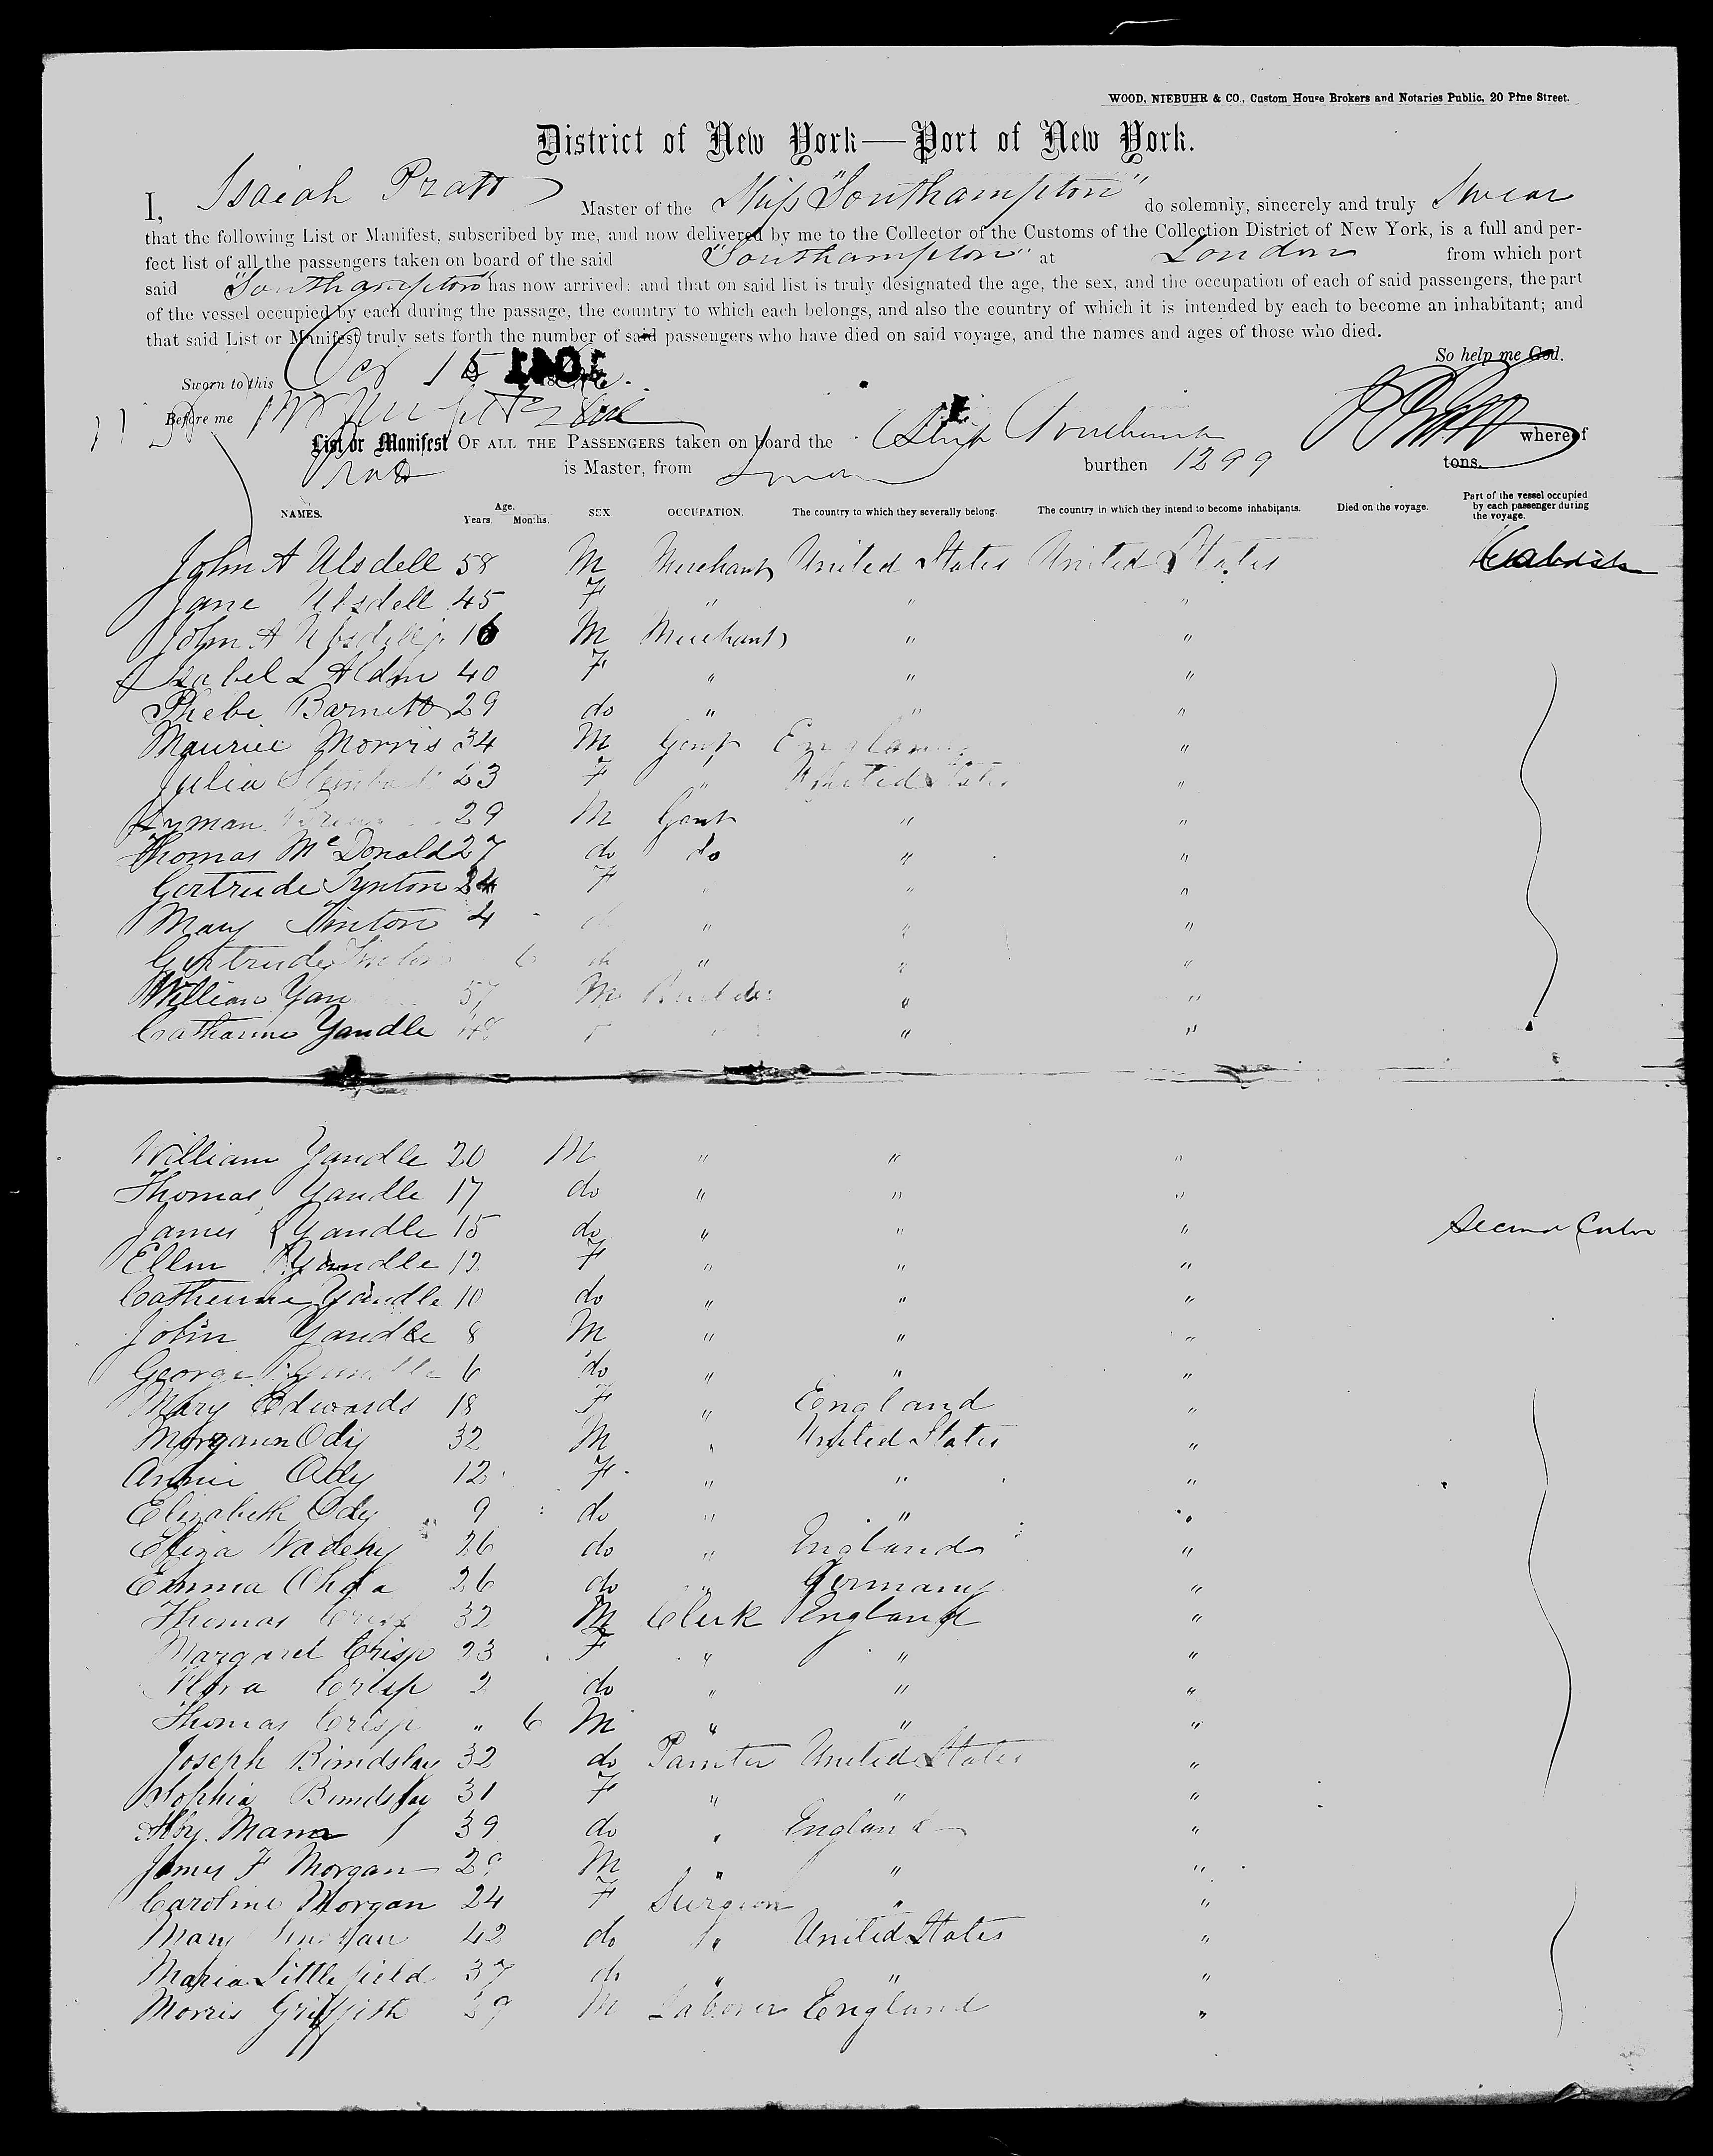 WOOD, NIEBUHR & CO., Custom House Brokers and Notaries Public, 20 Pine Street.
District of New York—Port of New York.
I, Isaiah Pratt Master of the Ship "Southampton" do solemnly, sincerely and truly Swear
that the following List or Manifest, subscribed by me, and now delivered by me to the Collector of the Customs of the Collection District of New York, is a full and per-
fect list of all the passengers taken on board of the said "Southampton" at London from which port
said "Southampton" has now arrived; and that on said list is truly designated the age, the sex, and the occupation of each of said passengers, the part
of the vessel occupied by each during the passage, the country to which each belongs, and also the country of which it is intended by each to become an inhabitant; and
that said List or Manifest truly sets forth the number of said passengers who have died on said voyage, and the names and ages of those who died.
So help me God.
Sworn to this Oct 15
Before me
List or Manifest OF ALL THE PASSENGERS taken on board the Ship whereof
Pratt is Master, from burthen 1299 tons.
NAMES. Age. Years. Months. SEX OCCUPATION. The country to which they severally belong. The country in which they intend to become inhabitants. Died on the voyage. Part of the vessel occupied by each passenger during the voyage.
John A Ubsdell 58 M Merchant United States United States
Jane Ubsdell 45 F " " "
John A Ubsdell jr 16 M Merchant " "
Isabel L 40 F " " "
Phebe Barnett 29 do " " "
Maurice Morris 34 M Gent England "
Julia 23 F " United States "
Lyman 29 M Gent " "
Thomas McDonald 27 do do " "
Gertrude Tynton 24 F " " "
Mary Tinton 4 " " "
Gertrude 6 do " " "
William Yan 57 M " "
Catharine Yandle 48 F " "
William Yandle 20 M " " "
Thomas Yandle 17 do " " "
James Yandle 15 do " " " Second Cabin
Ellen Yandle 12 F " " "
Catherine Yandle 10 do " " "
John Yandle 8 M " " "
George Yandle 6 do " " "
Mary Edwards 18 F " England "
Morgann Ody 32 M " United States "
Annie Ody 12 F " " "
Elizabeth Ody 9 do " " "
Eliza 26 do " England "
Emma 26 do " Germany "
Thomas Crisp 32 M Clerk England "
Margaret Crisp 23 F " " "
Crisp 2 do " " "
Thomas Crisp " 6 M " " "
Joseph Bimdslay 32 do Painter United States "
Sophia 31 F " " "
Mann 39 do " England "
James F Morgan M " " "
Caroline Morgan 24 F Surgeon " "
Mary 42 do " United States "
Maria Littlefield 37 do " " "
Morris Griffith 39 M Laborer England "